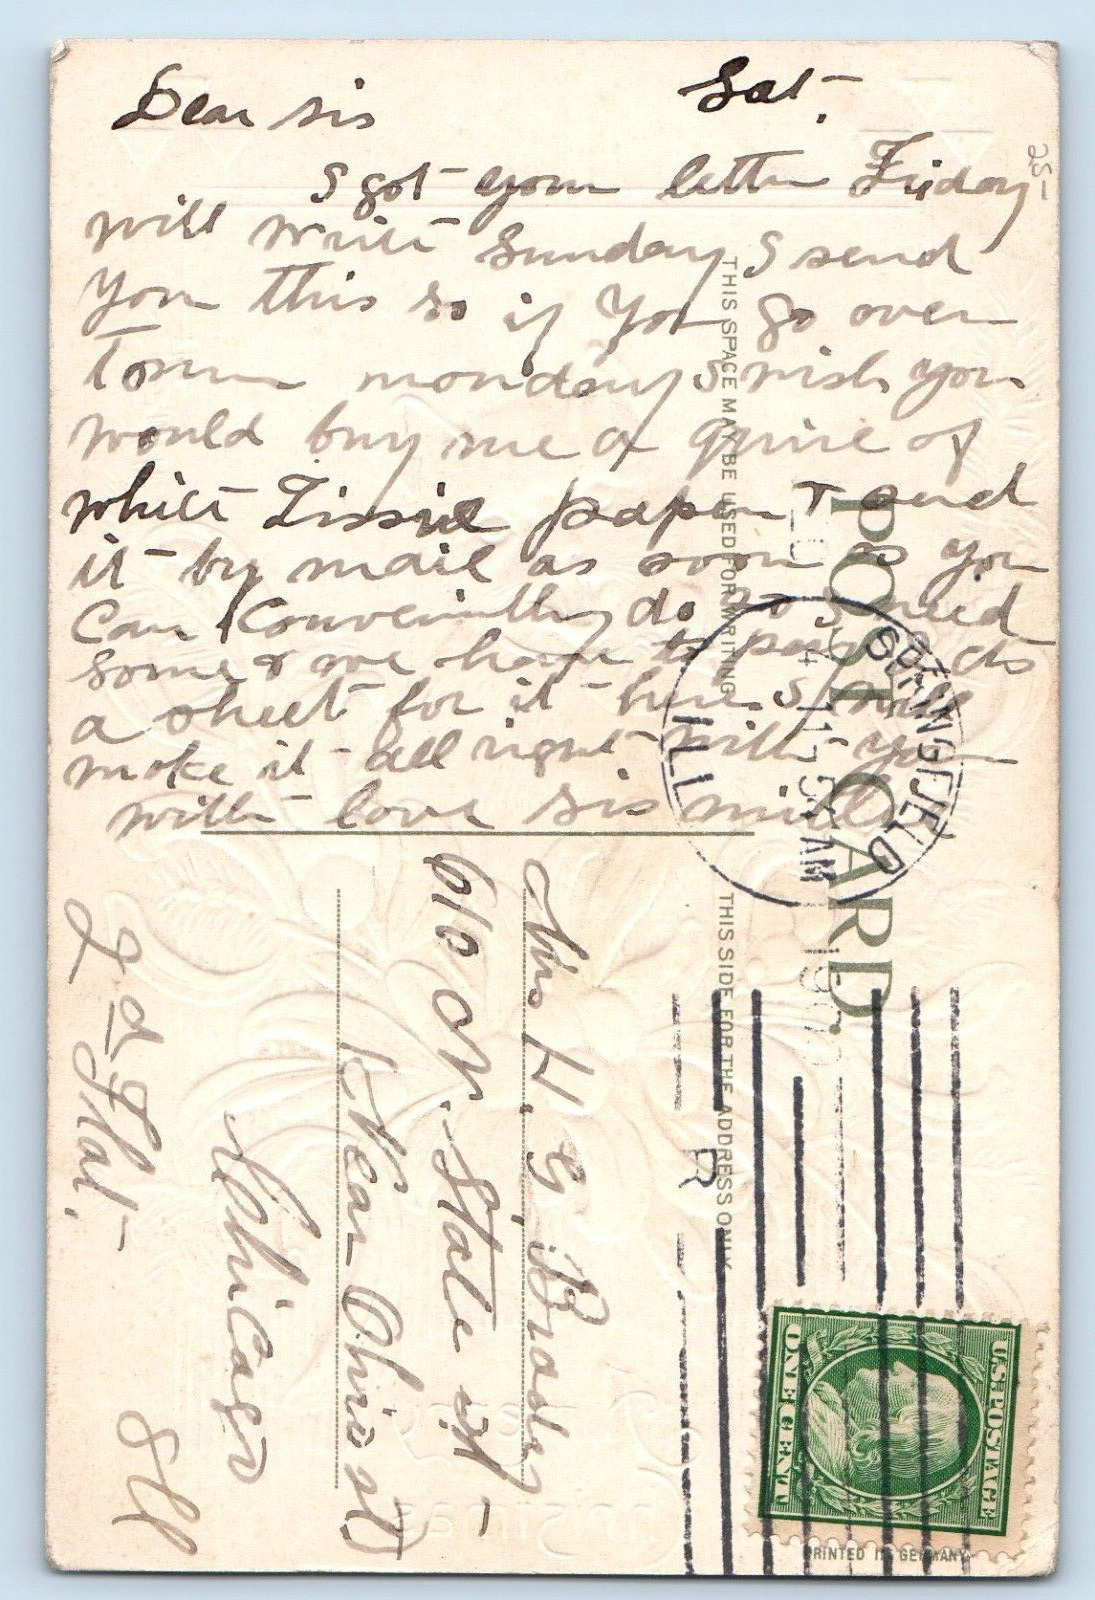 Dear sis Sat.
I got your letter Friday
will write Sunday I send
You this so if You go over
Town monday I wish you
would buy me a quire of
white Tissue paper & send
it by mail as soon as you
can Conveniently do so I need
some & we have to pay cts
a sheet for it here I will
make it all right with you
with love sis
25-
THIS SPACE MAY BE USED FOR WRITING
POST CARD
THIS SIDE FOR THE ADDRESS ONLY
SPRINGFIELD
ILL
AM
R
U.S. POSTAGE
ONE CENT
Mrs H. G. Brady
610 N. State st
Near Ohio st
Chicago
Ill
2d Flat.
PRINTED IN GERMANY